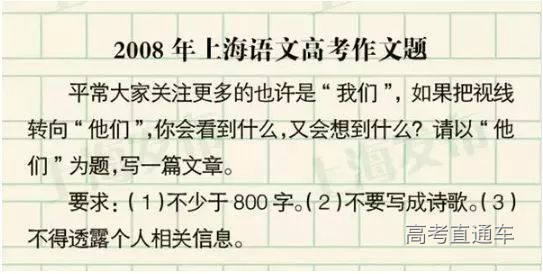 2008 年上海语文高考作文题
平常大家关注更多的也许是“我们”，如果把视线
转向“他们”，你会看到什么，又会想到什么？请以“他
们”为题，写一篇文章。
要求：（1）不少于 800 字。（2）不要写成诗歌。（3）
不得透露个人相关信息。
高考直通车